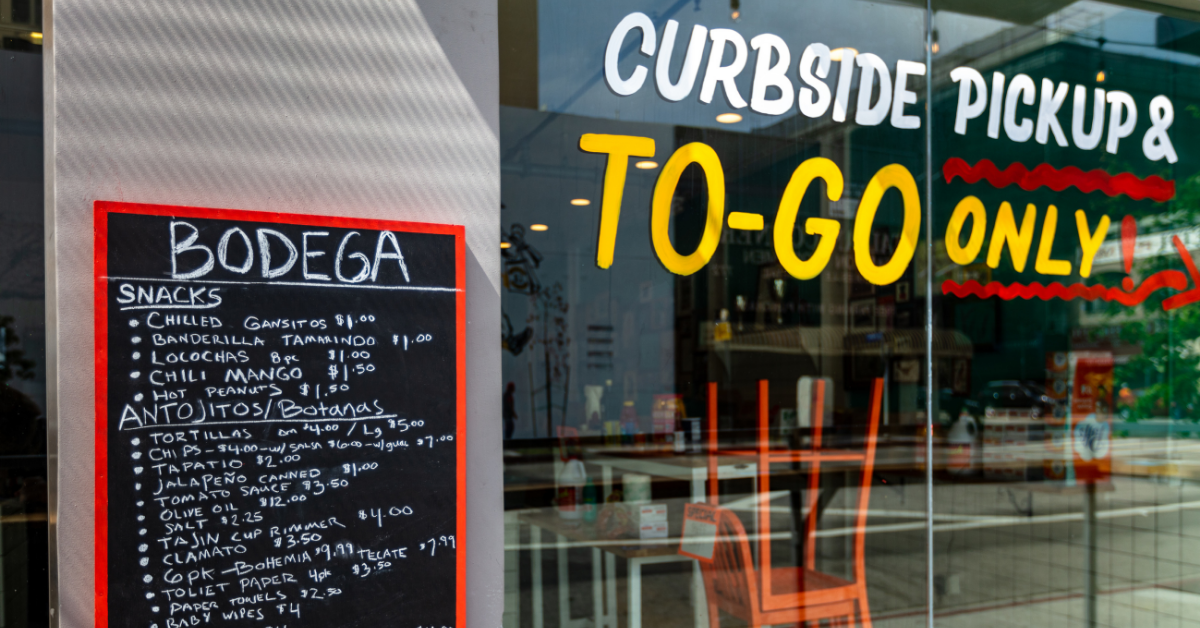 CURBSIDE PICKUP &
TO-GO ONLY!
BODEGA
SNACKS
CHILLED GANSITOS $1.00
BANDERILLA TAMARINDO $1.00
LOCOCHAS 8pc $1.00
CHILI MANGO $1.50
HOT PEANUTS $1.50
ANTOJITOS/Botanas
TORTILLAS sm $4.00 / Lg $5.00
CHIPS - $4.00 - w/ SALSA $6.00 - w/ guac $7.00
TAPATIO $2.00
JALAPEÑO CANNED $1.00
TOMATO SAUCE $3.50
OLIVE OIL $12.00
SALT $2.25
TAJIN CUP RIMMER $4.00
CLAMATO $3.50
6pk - BOHEMIA $9.99 TECATE $7.99
TOLIET PAPER 4pk $3.50
PAPER TOWELS $2.50
BABY WIPES $4